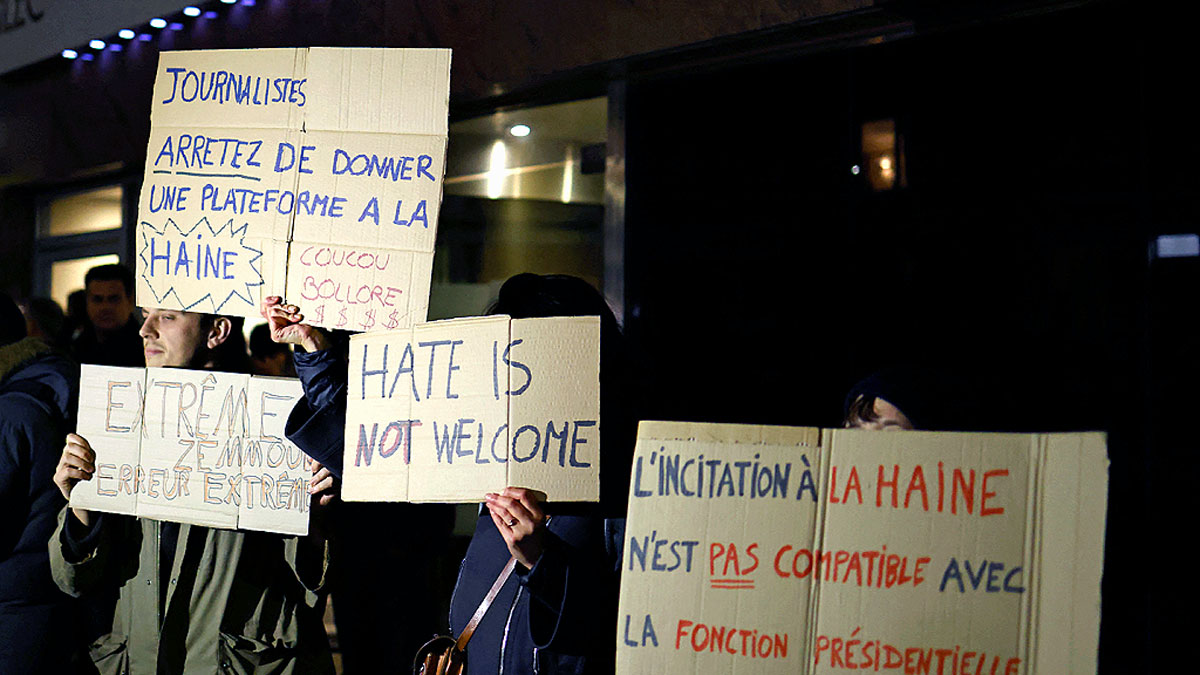 JOURNALISTES
ARRETEZ DE DONNER
UNE PLATEFORME A LA
HAINE
COUCOU
BOLLORE
$ $ $ $
EXTRÊME
ZEMMOUR
ERREUR EXTRÊME
HATE IS
NOT WELCOME
L'INCITATION À LA HAINE
N'EST PAS COMPATIBLE AVEC
LA FONCTION PRÉSIDENTIELLE